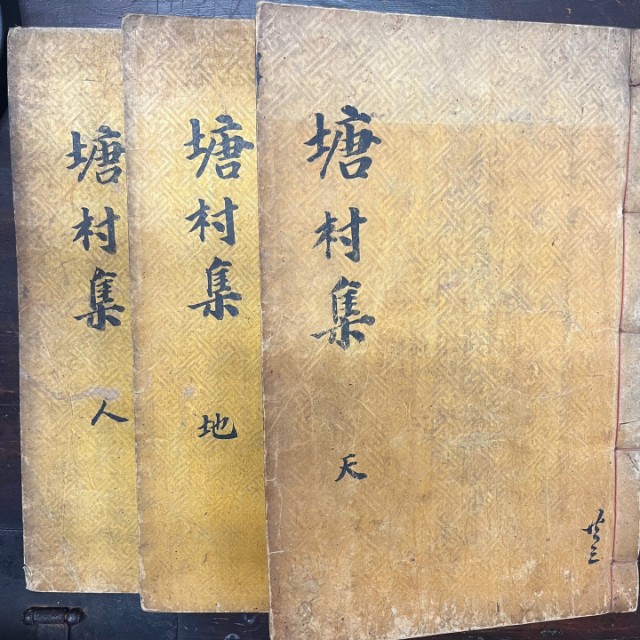 塘村集 天
共三
塘村集 地
塘村集 人